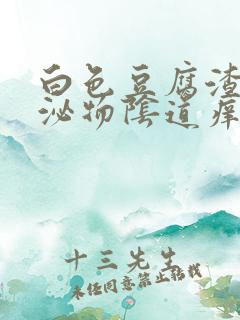 白色豆腐渣
泌物陰道痒
十三先生
未经同意禁止转载